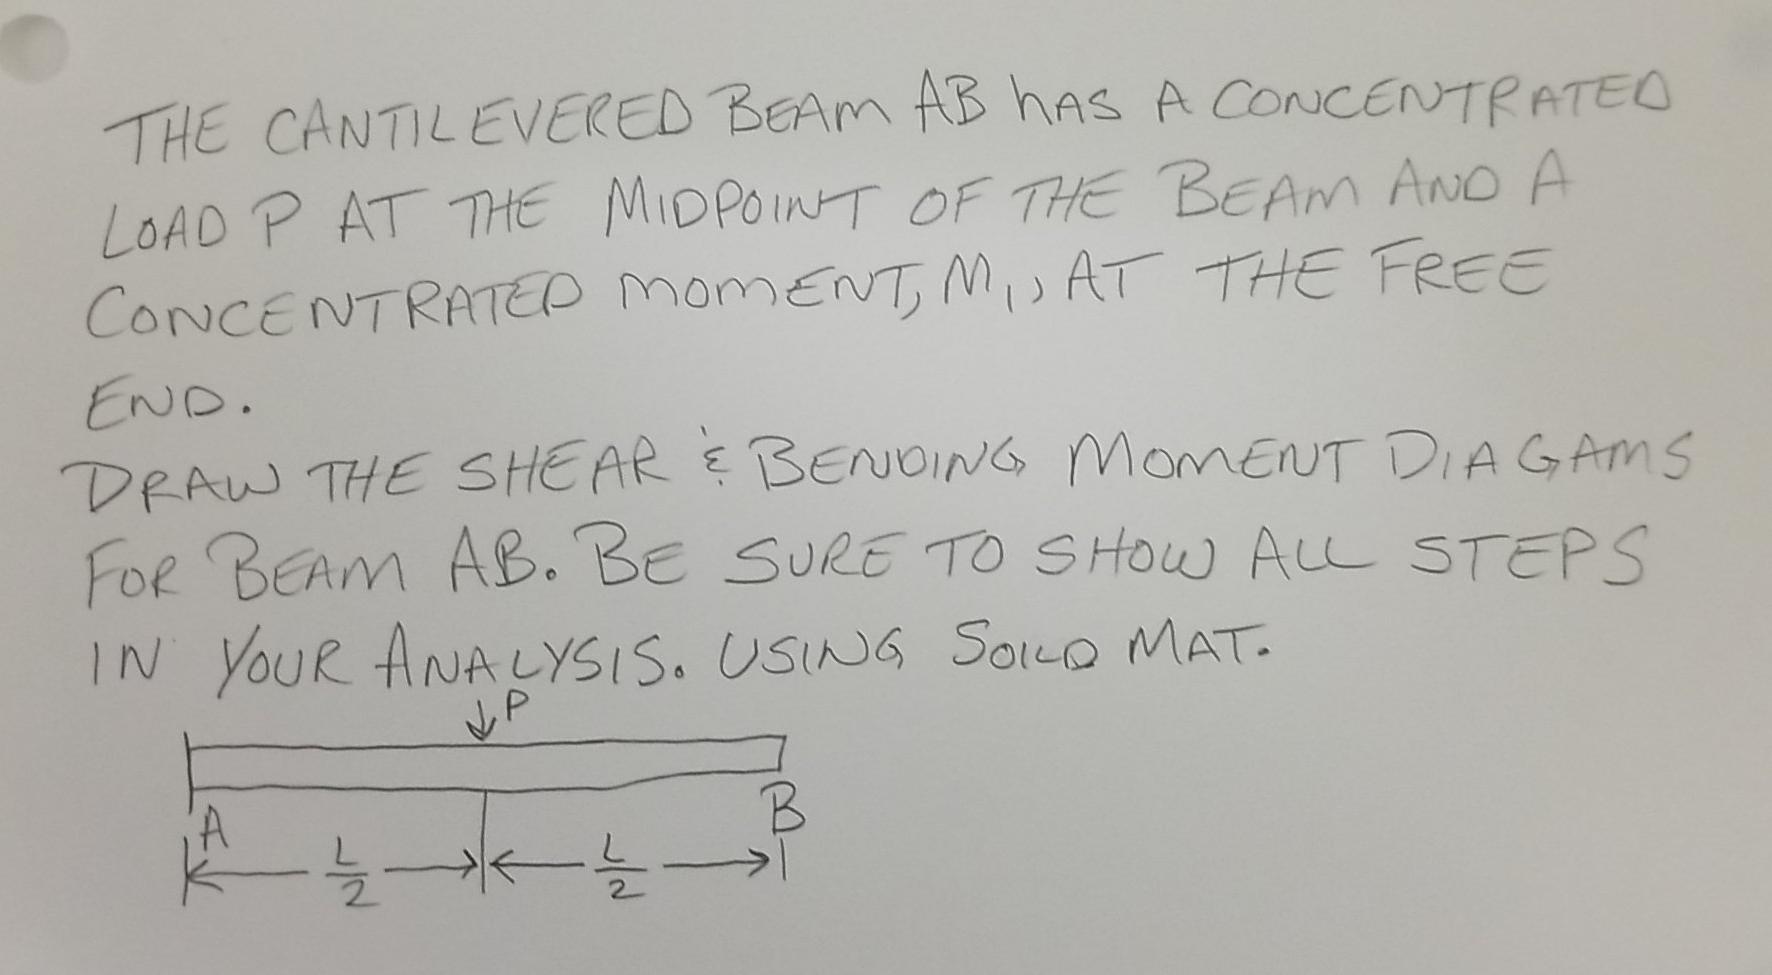 THE CANTILEVERED BEAM AB hAS A CONCENTRATED
LOAD P AT THE MIDPOINT OF THE BEAM AND A
CONCENTRATED MOMENT, M₁, AT THE FREE
END.
DRAW THE SHEAR & BENDING MOMENT DIAGAMS
FOR BEAM AB. BE SURE TO SHOW ALL STEPS
IN YOUR ANALYSIS. USING SOILD MAT.
P
A
B
L/2
L/2